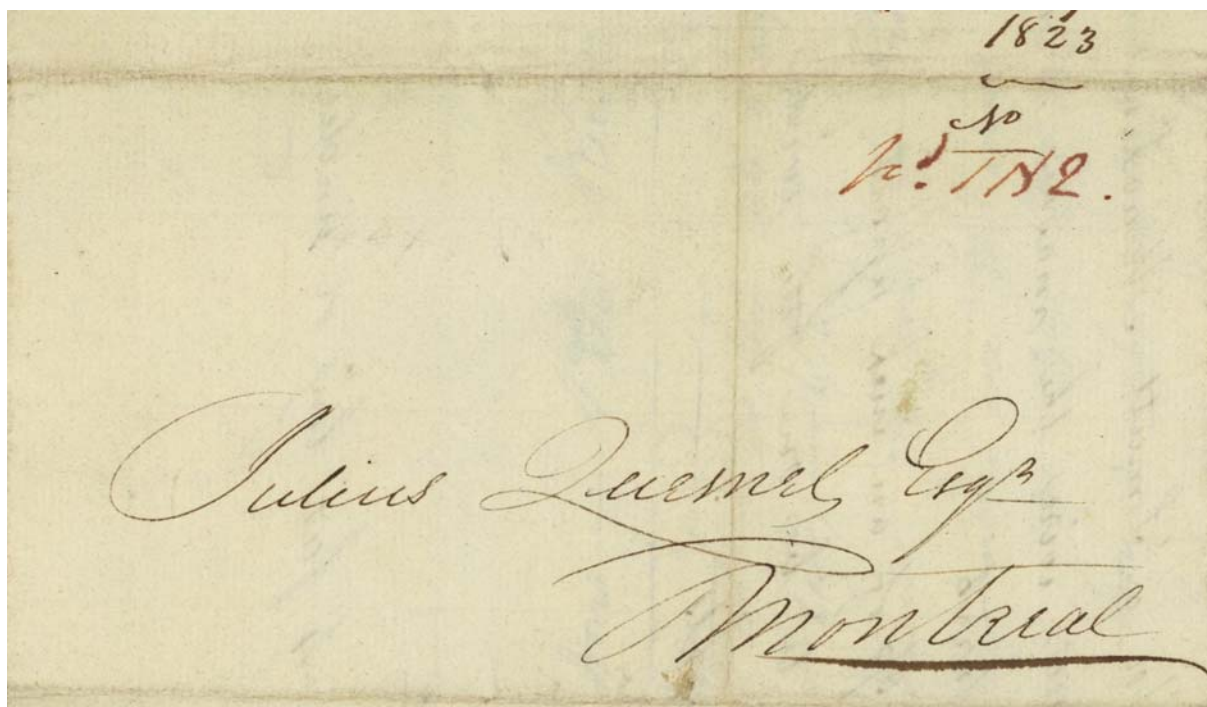 1823
No
pd 1N2.
Julius Quesnel Esqr
Montreal